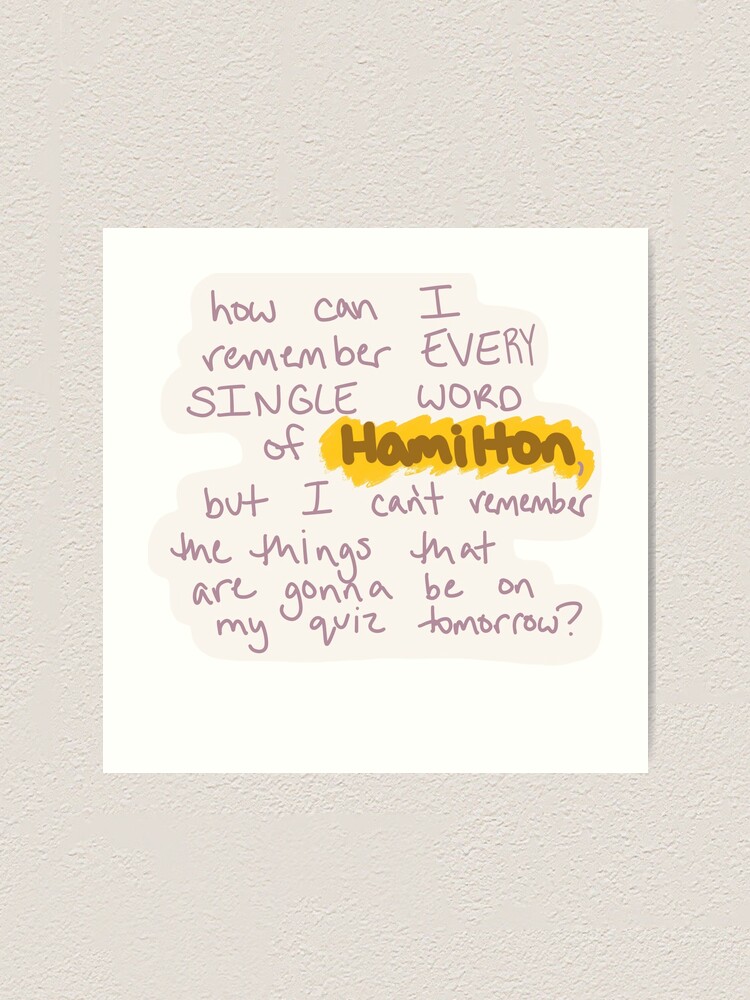 how can I
remember EVERY
SINGLE WORD
of Hamilton,
but I can't remember
the things that
are gonna be on
my quiz tomorrow?